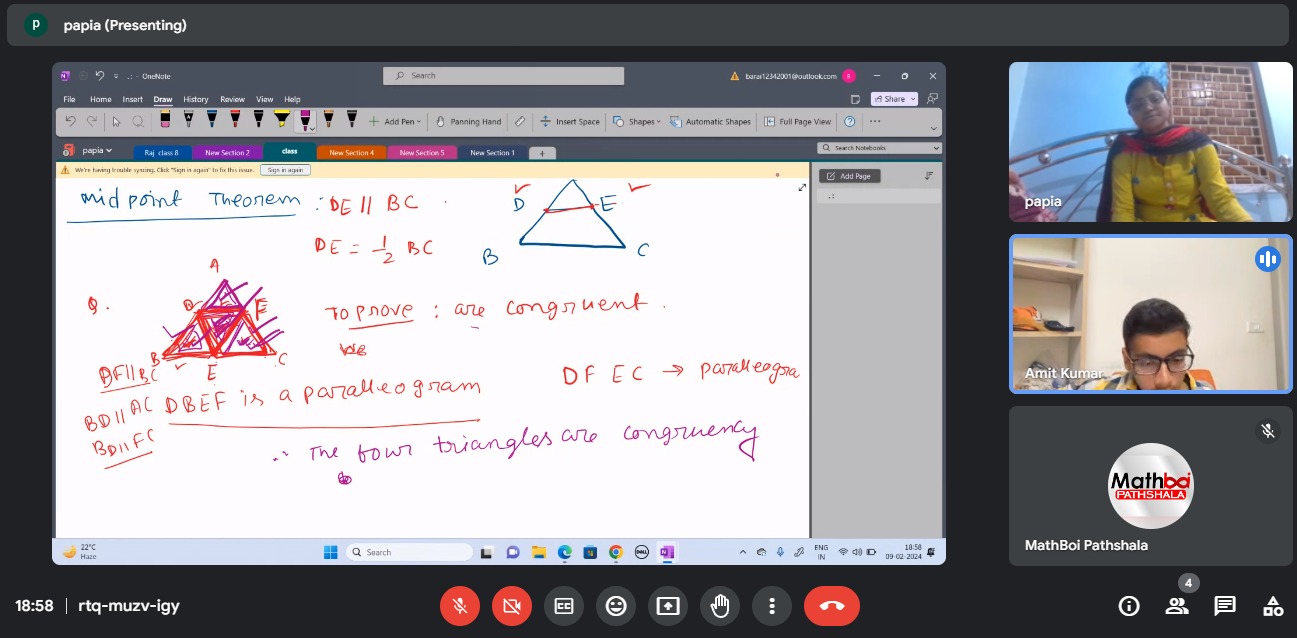 P papia (Presenting)
OneNote
Search
barai12342001@outlook.com B
File Home Insert Draw History Review View Help
Share
Add Pen Panning Hand Insert Space Shapes Automatic Shapes Full Page View
papia Raj class 8 New Section 2 class New Section 4 New Section 5 New Section 1 + Search Notebooks
We're having trouble syncing. Click "Sign in again" to fix this issue. Sign in again
Add Page
midpoint Theorem : DE || BC
D E
DE = 1/2 BC
B C
A
Q. D F
To prove : are congruent.
B E C
DF||BC
DF EC → paralleogra
BD || AC DBEF is a paralleogram
BD || FC
∴ The four triangles are congruency
22°C
Haze
Search
DELL
ENG
IN
18:58
09-02-2024
papia
Amit Kumar
Mathboi
PATHSHALA
MathBoi Pathshala
18:58 | rtq-muzv-igy
4